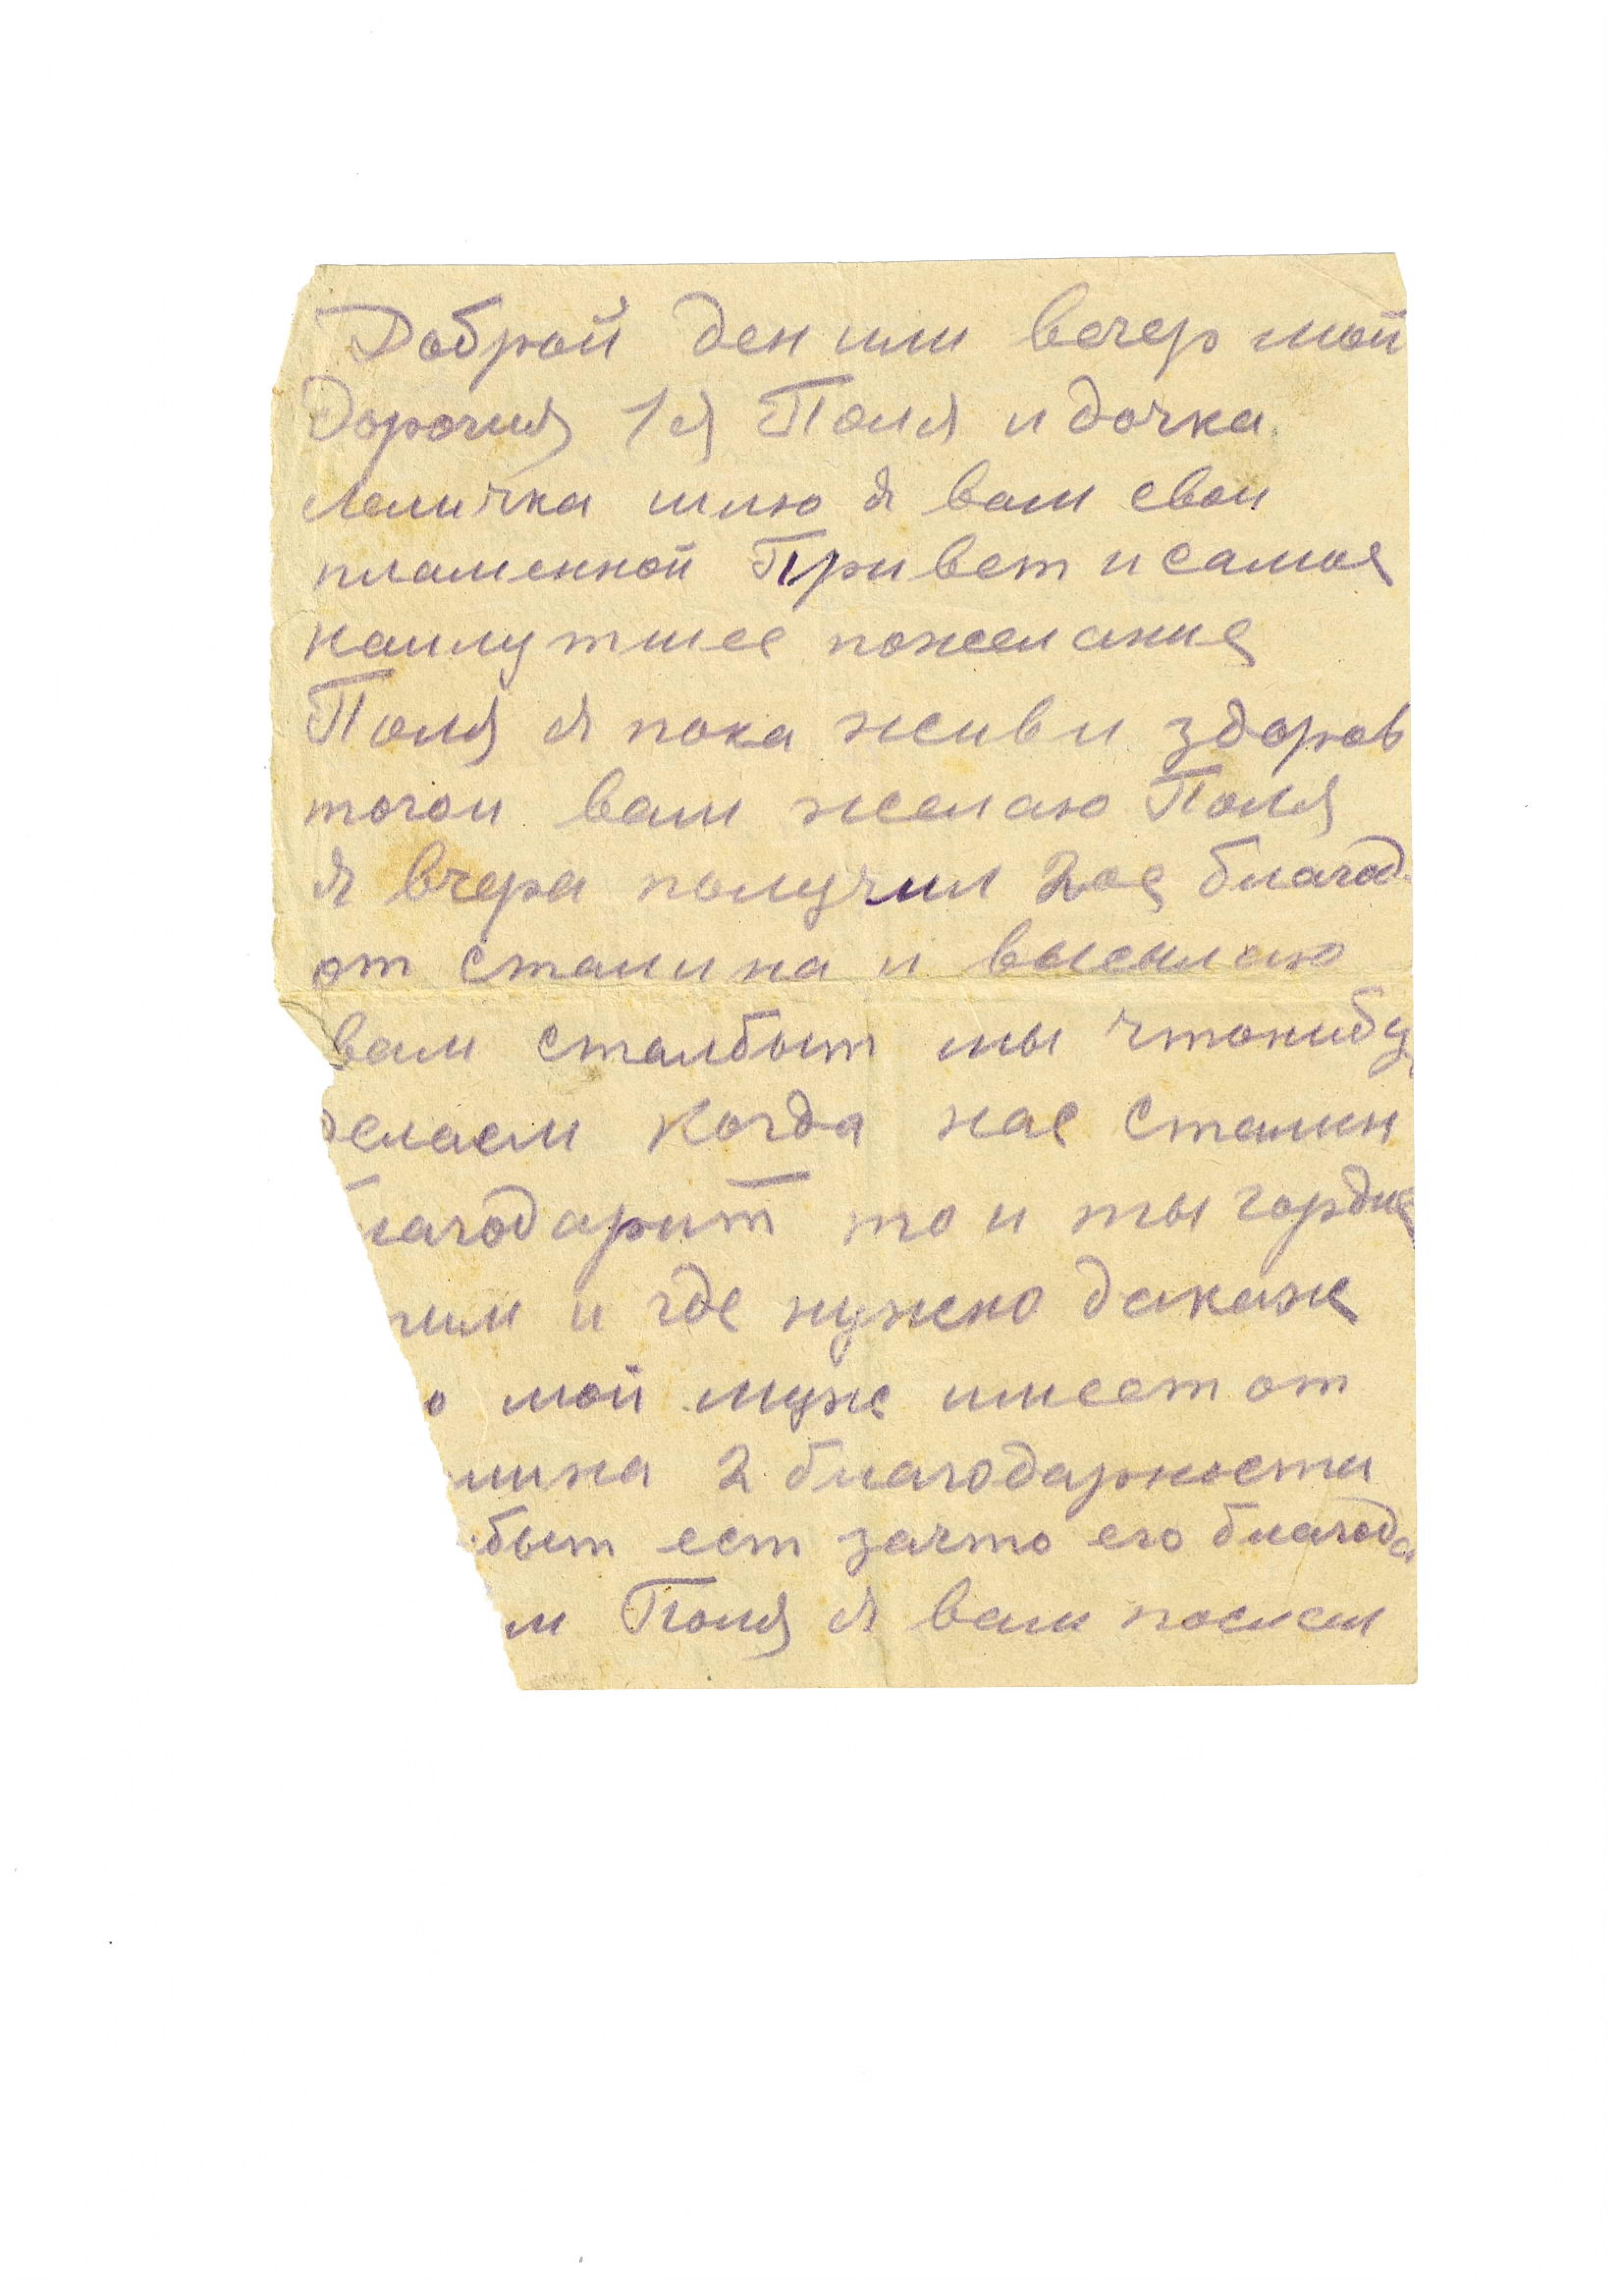 Доброй ден или вечер мой
Дорогия 1я Поля и дочка
Леличка шлю я вам свои
пламенной Привет и самое
наилутшее пожелание
Поля я пока жив и здоров
того и вам желаю Поля
я вчера получил 2ое благод
от сталина и высылаю
вам сталбыт мы чтонибу
делаем когда нас сталин
благодарит то и ты гордис
и где нужно докаже
о мой муже имеет от
лина 2 благодарности
быт ест зачто его благода
м Поля я вам послал